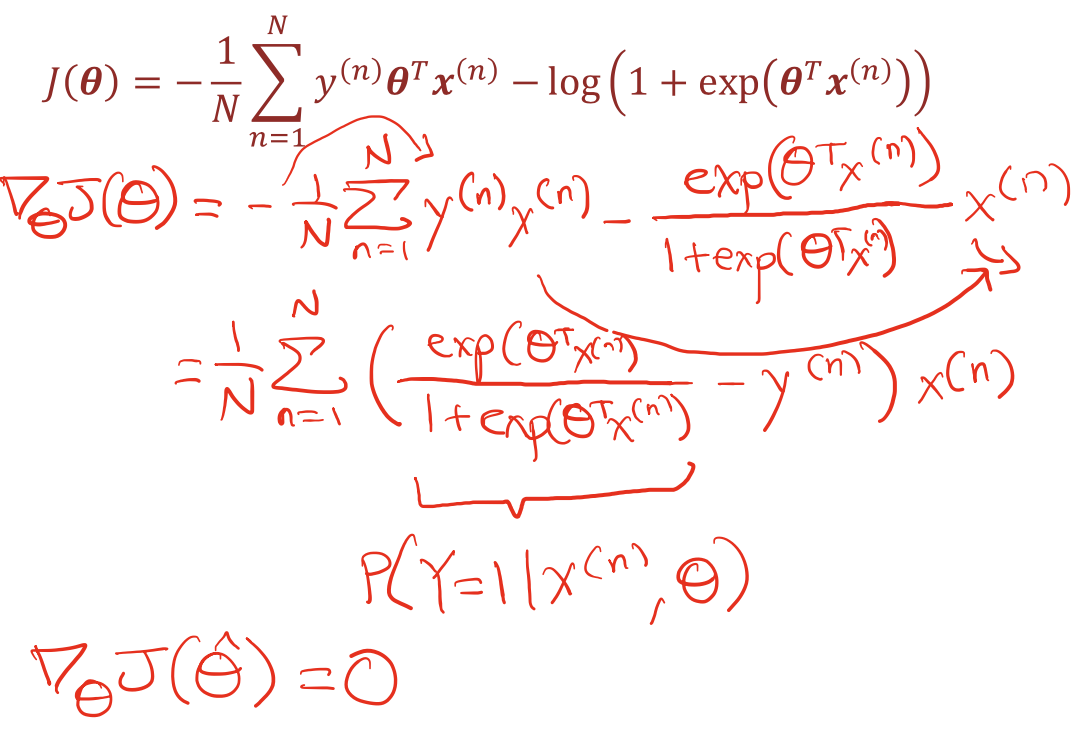 J(θ) = −1/N ∑_{n=1}^{N} y^{(n)}θ^T x^{(n)} − log(1 + exp(θ^T x^{(n)}))
∇_θ J(θ) = −1/N ∑_{n=1}^{N} y^{(n)} x^{(n)} − exp(θ^T x^{(n)})/(1+exp(θ^T x^{(n)})) x^{(n)}
= 1/N ∑_{n=1}^{N} (exp(θ^T x^{(n)})/(1+exp(θ^T x^{(n)})) − y^{(n)}) x^{(n)}
P(Y=1|x^{(n)}, θ)
∇_θ J(θ̂) = 0